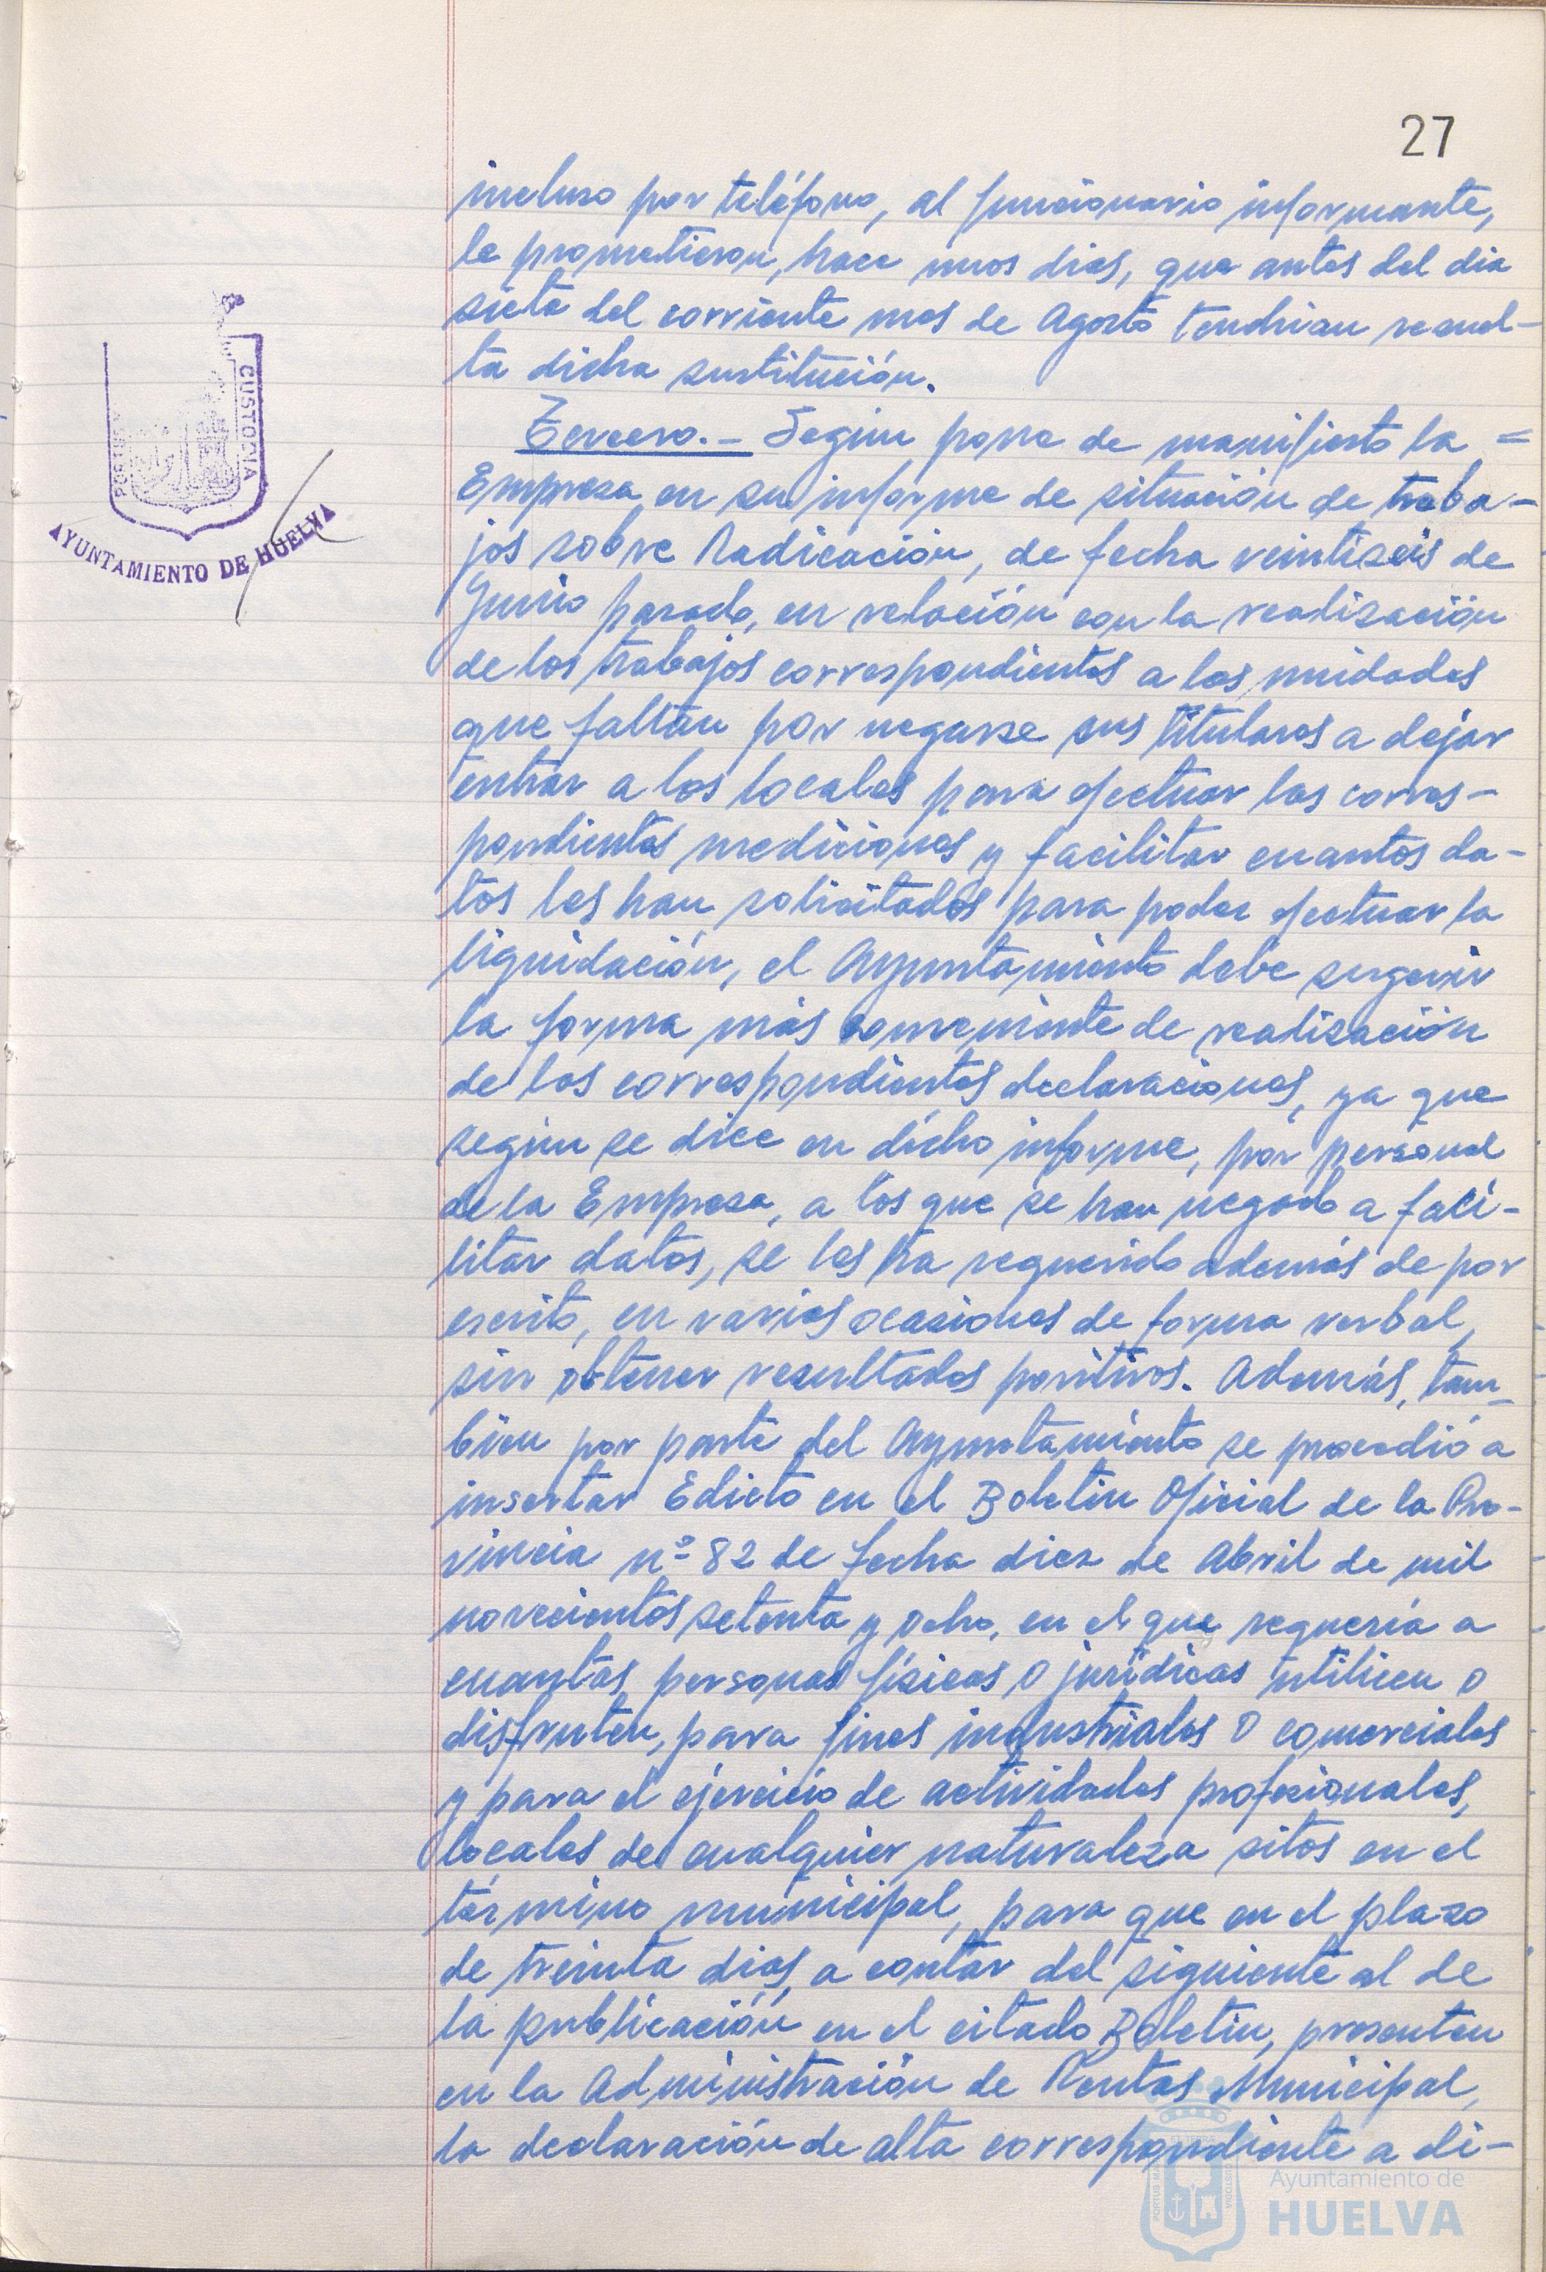 27
incluso por teléfono, al funcionario informante,
le prometieron, hace unos dias, que antes del dia
siete del corriente mes de Agosto tendrian resuel-
ta dicha sustitución.
Tercero.- Según pone de manifiesto la =
Empresa en su informe de situación de traba-
jos sobre Radicación, de fecha veintiseis de
Junio pasado, en relación con la realización
de los trabajos correspondientes a las unidades
que faltan por negarse sus titulares a dejar
entrar a los locales para efectuar las corres-
pondientes mediciones y facilitar cuantos da-
tos les han solicitados para poder efectuar la
liquidación, el Ayuntamiento debe sugerir
la forma más conveniente de realización
de las correspondientes declaraciones, ya que
según se dice en dicho informe, por personal
de la Empresa, a los que se han negado a faci-
litar datos, se les ha requerido además de por
escrito, en varias ocasiones de forma verbal,
sin obtener resultados positivos. Además, tam-
bién por parte del Ayuntamiento se procedió a
insertar Edicto en el Boletin Oficial de la Pro-
vincia nº 82 de fecha diez de Abril de mil
novecientos setenta y ocho, en el que requería a
cuantas personas físicas o jurídicas utilicen o
disfruten, para fines industriales o comerciales
y para el ejercicio de actividades profesionales,
locales de cualquier naturaleza sitos en el
término municipal, para que en el plazo
de treinta dias, a contar del siguiente al de
la publicación en el citado Boletin, presenten
en la Administración de Rentas Municipal,
la declaración de alta correspondiente a di-
PORTUS
CUSTODIA
AYUNTAMIENTO DE HUELVA
Ayuntamiento de
HUELVA